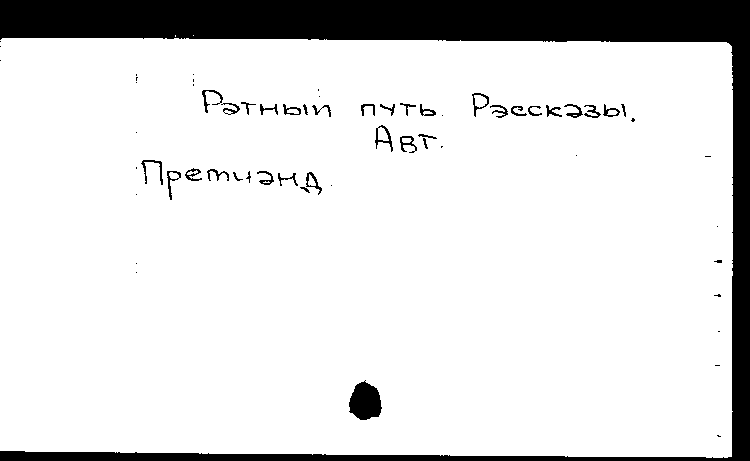 Ратный путь. Рассказы.
Авт.
Премианд